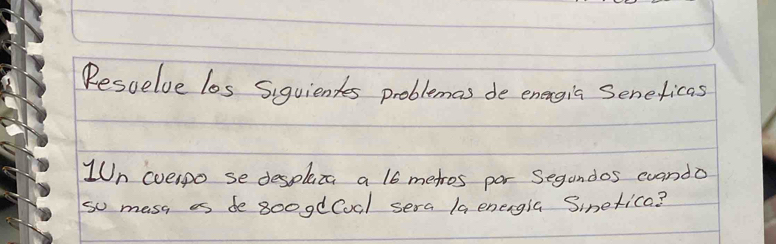 Resuelve los Siguientes problemas de energia Seneticas
1Un cuerpo se desplaza a 16 metros por Segundos cuando
su masa es de 800g d Cual sera la energia Sinetica?